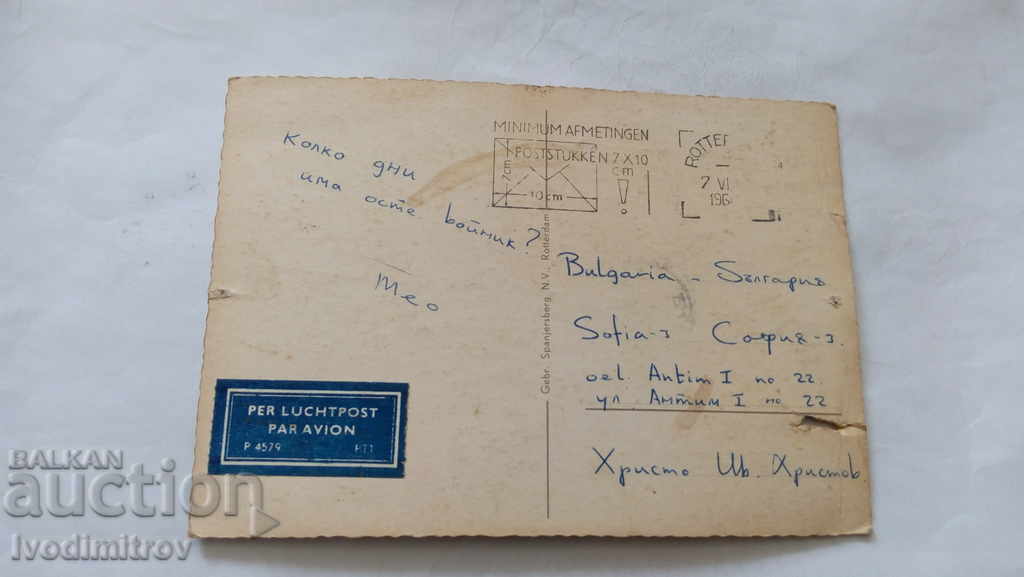 MINIMUM AFMETINGEN
POSTSTUKKEN 7 X 10
cm
7cm
10 cm
!
ROTTE
7 VI
196
Колко дни
има осте войник?
Тео
Bulgaria - България
Sofia-3 София-3.
oel. Antim I no 22.
ул Антим I no 22
Христо Ив. Христов
Gebr. Spanjersberg. N.V., Rotterdam
PER LUCHTPOST
PAR AVION
P 4579 PTT
BALKAN
auction
Ivodimitrov